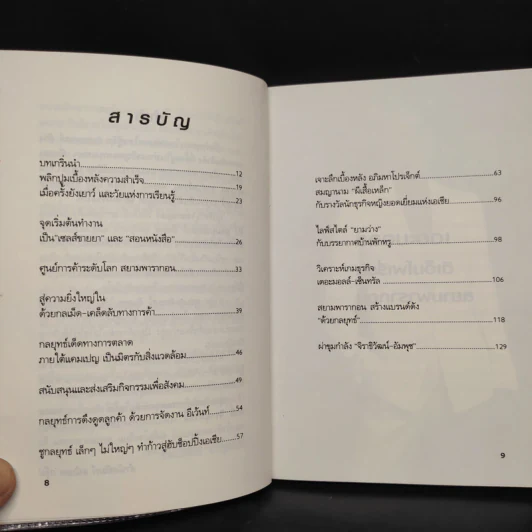 สารบัญ
บทเกริ่นนำ......12
พลิกปูมเบื้องหลังความสำเร็จ......19
เมื่อครั้งยังเยาว์ และวัยแห่งการเรียนรู้......23
จุดเริ่มต้นทำงาน
เป็น "เซลส์ขายยา" และ "สอนหนังสือ"......26
ศูนย์การค้าระดับโลก สยามพารากอน......33
สู่ความยิ่งใหญ่ใน
ด้วยกลเม็ด-เคล็ดลับทางการค้า......39
กลยุทธ์เด็ดทางการตลาด
ภายใต้แคมเปญ เป็นมิตรกับสิ่งแวดล้อม......46
สนับสนุนและส่งเสริมกิจกรรมเพื่อสังคม......49
กลยุทธ์การดึงดูดลูกค้า ด้วยการจัดงาน อีเว้นท์......54
ชูกลยุทธ์ เล็กๆ ไม่ใหญ่ๆ ทำก้าวสู่ฮับช็อปปิ้งเอเชีย......57
8
เจาะลึกเบื้องหลัง อภิมหาโปรเจ็กต์......63
สมญานาม "ผีเสื้อเหล็ก"
กับรางวัลนักธุรกิจหญิงยอดเยี่ยมแห่งเอเชีย......96
ไลฟ์สไตล์ "ยามว่าง"
กับบรรยากาศบ้านพักหรู......98
วิเคราะห์เกมธุรกิจ
เดอะมอลล์-เซ็นทรัล......106
สยามพารากอน สร้างแบรนด์ดัง
"ด้วยกลยุทธ์"......118
ผ่าขุมกำลัง "จิราธิวัฒน์-อัมพุช"......129
9